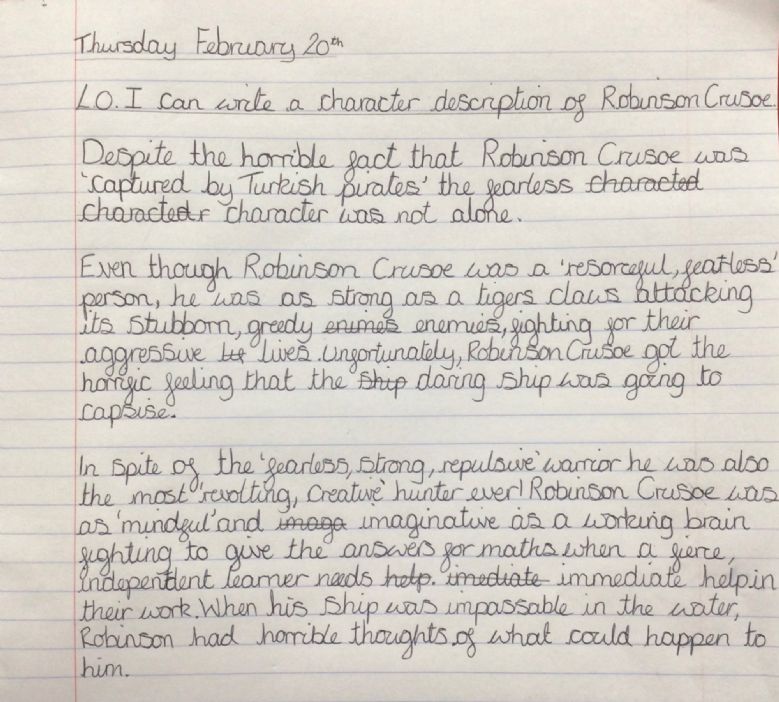 Thursday February 20th
LO. I can write a character description of Robinson Crusoe.
Despite the horrible fact that Robinson Crusoe was
'captured by Turkish pirates' the fearless characted
charactedr character was not alone.
Even though Robinson Crusoe was a 'resorceful, featless'
person, he was as strong as a tigers claws attacking
its stubborn, greedy enimes enemies, fighting for their
aggressive lives. Unfortunately, Robinson Crusoe got the
horrific feeling that the ship daring ship was going to
capsise.
In spite of the 'fearless, strong, repulsive' warrior he was also
the most 'revolting, creative' hunter ever! Robinson Crusoe was
as 'mindful' and imaga imaginative as a working brain
fighting to give the answers for maths when a fierce,
independent learner needs help. imediate immediate help in
their work. When his ship was impassable in the water,
Robinson had horrible thoughts of what could happen to
him.